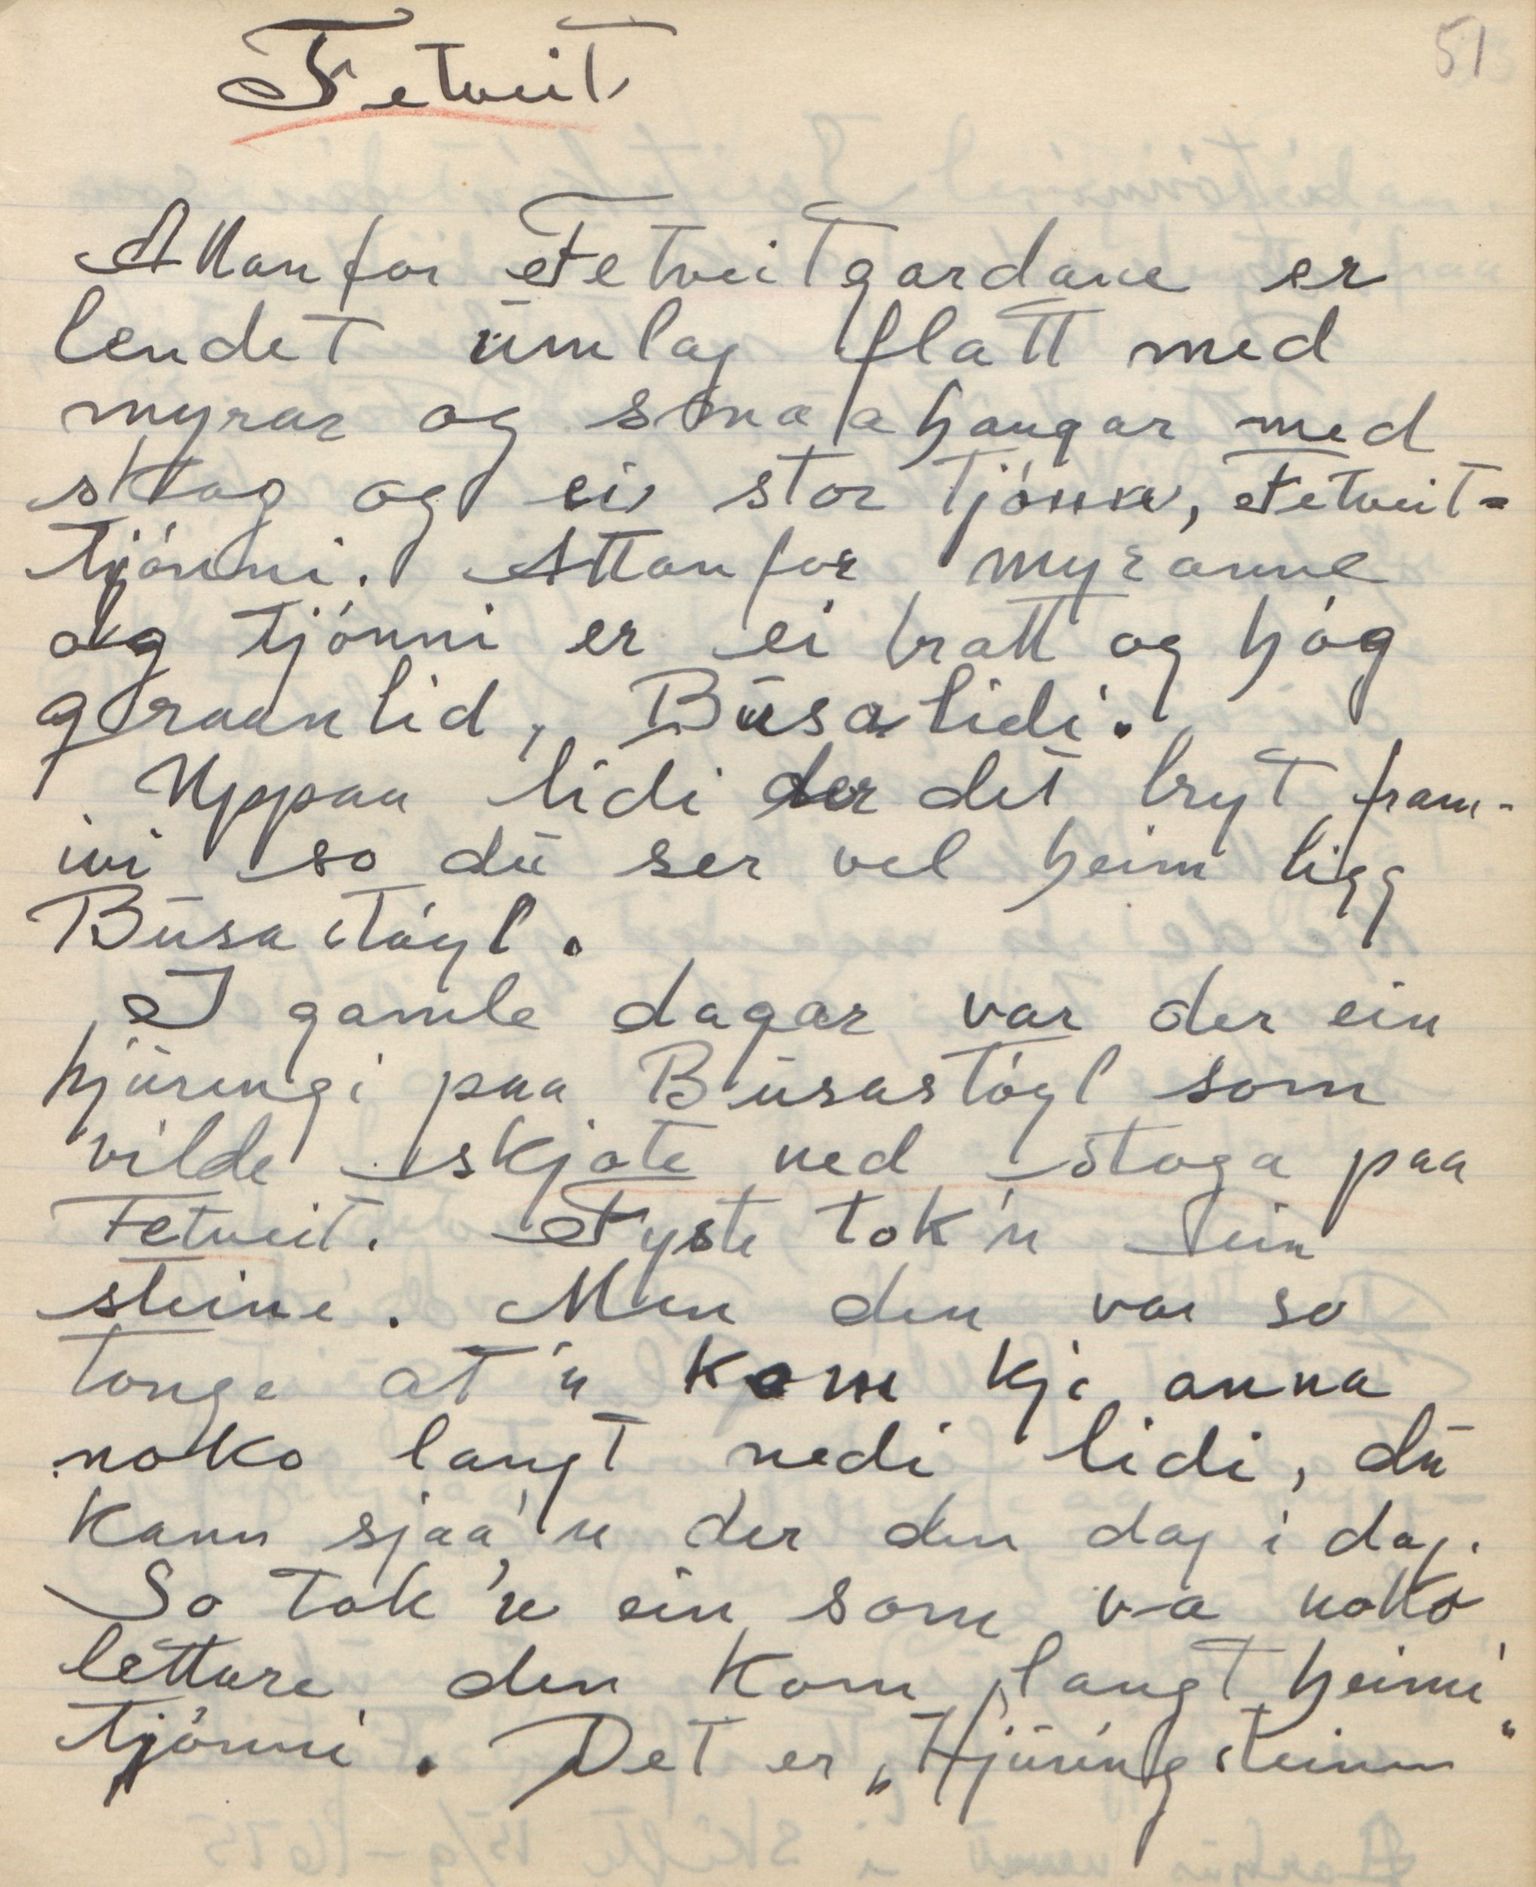 51
Fetveit
Attanfor Fetveitgardane er
lendet umlag flatt med
myrar og smaa haugar med
skog og ei stor tjónn, Fetveit-
tjónni. Attanfor myranne
og tjónni er ei bratt og hóg
graanlid, Busalidi.
Uppaa lidi der det bryt fram-
ivi so du ser vel heim ligg
Busastóyl.
I gamle dagar var der ein
hjuringi paa Busastóyl som
vilde skjote ned stoga paa
Fetveit. Fyste tok'n ein
steine. Men den var so
tonge at'n kom kje anna
noko langt nedi lidi, du
kann sjaa'n der den dag i dag.
So tok'n ein som va noko
lettare den kom langt heimi
tjónni. Det er „Hjuringsteinen"